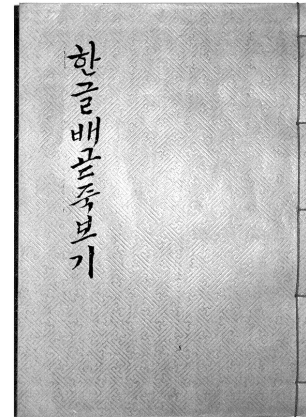 한글배곧죽보기